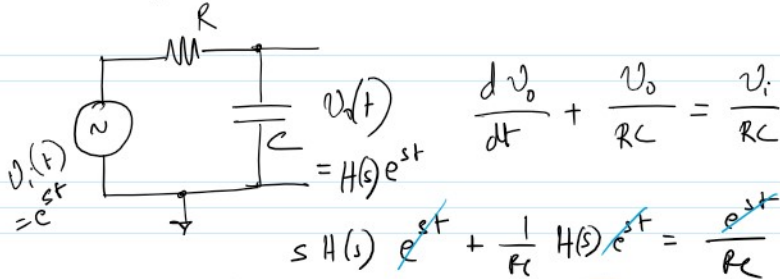 R
~
C
v_i(t)
= e^{st}
v_o(t)
= H(s) e^{st}
\frac{d v_o}{dt} + \frac{v_o}{RC} = \frac{v_i}{RC}
s H(s) e^{st} + \frac{1}{RC} H(s) e^{st} = \frac{e^{st}}{RC}